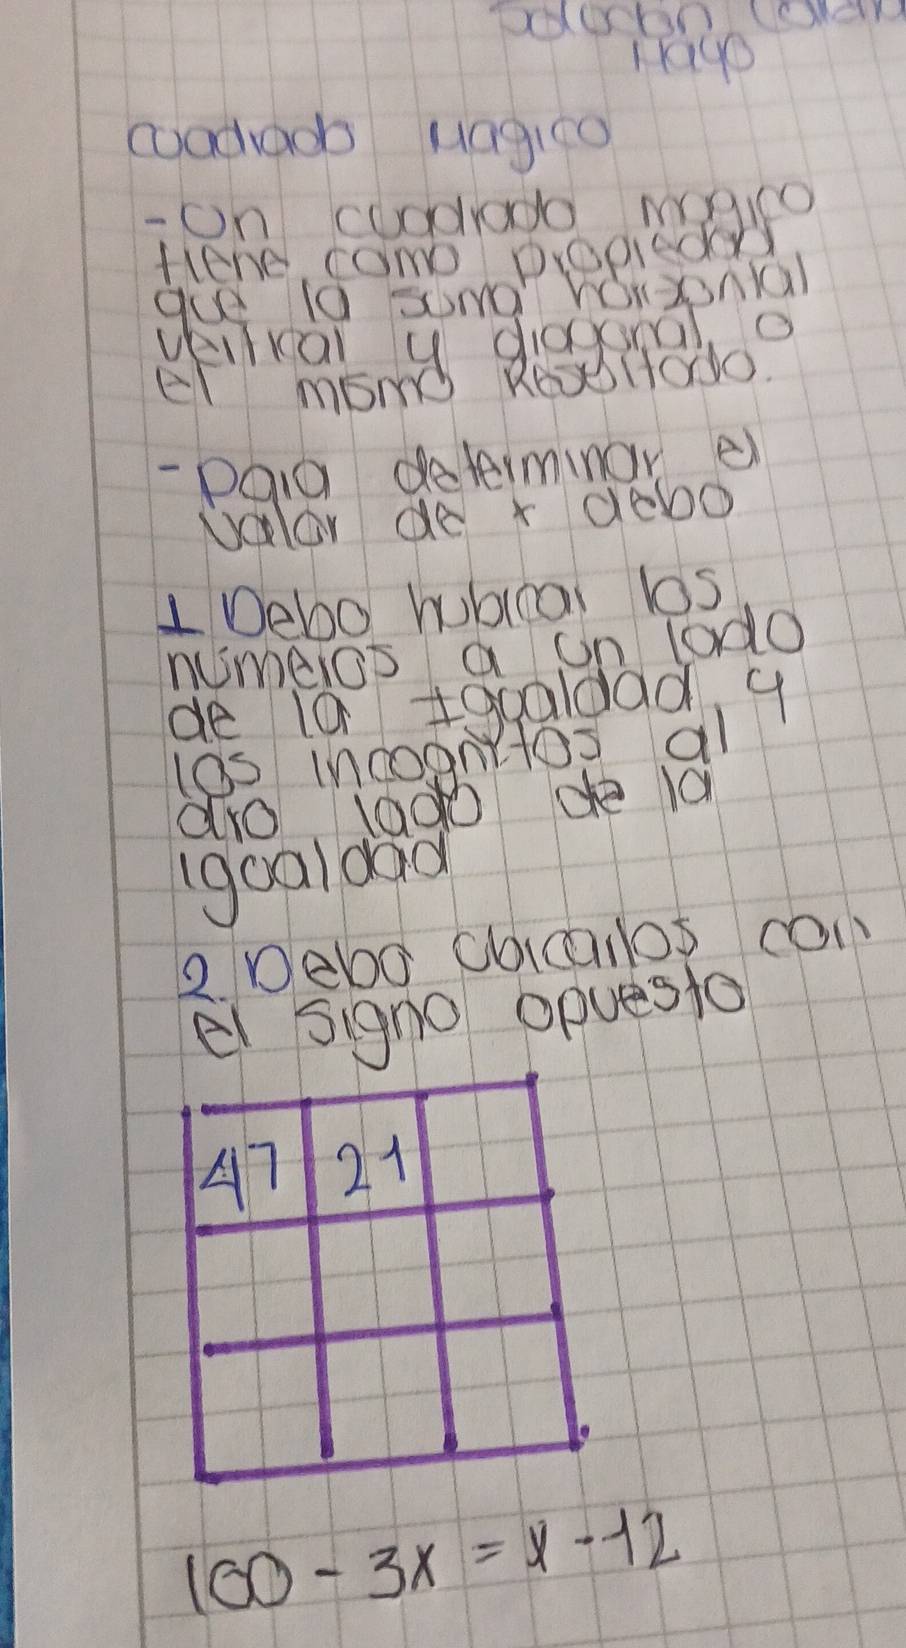 cuadrado Magico
-Un cuadrado magico
tiene como propiedad
que la suma horizontal
vertical y diagonal, o
el mismo Resultado.
-Para determinar el
valor de x debo
1 Debo hubicar los
números a un lado
de la Igualdad, y
las incognitas al
otro lado de la
igualdad
2. Debo ubicarlos con
el signo opuesto
47 21
100 - 3x = x - 12